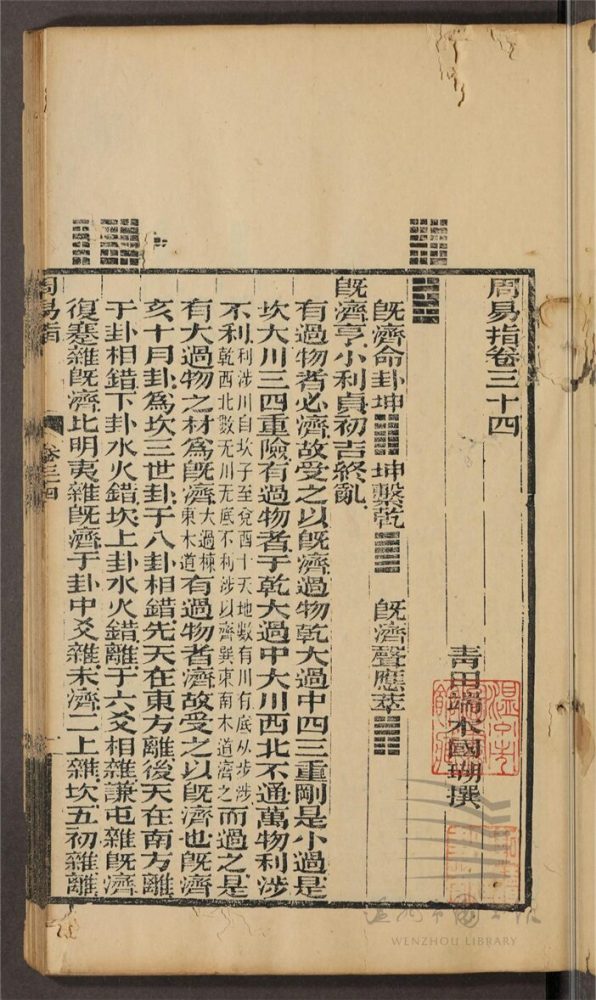 周易指卷三十四
青田端木國瑚撰
既濟命卦坤䷁坤繫乾䷀ 既濟聲應萃䷬
既濟亨小利貞初吉終亂
有過物者必濟故受之以既濟過物乾大過中四三重剛是小過是
坎大川三四重險有過物者于乾大過中大川西北不通萬物利涉
不利利涉川自坎子至兌酉十天地數有川有底从步涉
乾西北數无川无底不利涉以濟巽東南木道濟之而過之是
有大過物之材為既濟大過棟東木道有過物者濟故受之以既濟也既濟
亥十月卦為坎三世卦于八卦相錯先天在東方離後天在南方離
于卦相錯下卦水火錯坎上卦水火錯離于六爻相雜謙屯雜既濟
復蹇雜既濟比明夷雜既濟于卦中爻雜未濟二上雜坎五初雜離
周易指
卷三十四
一
WENZHOU LIBRARY